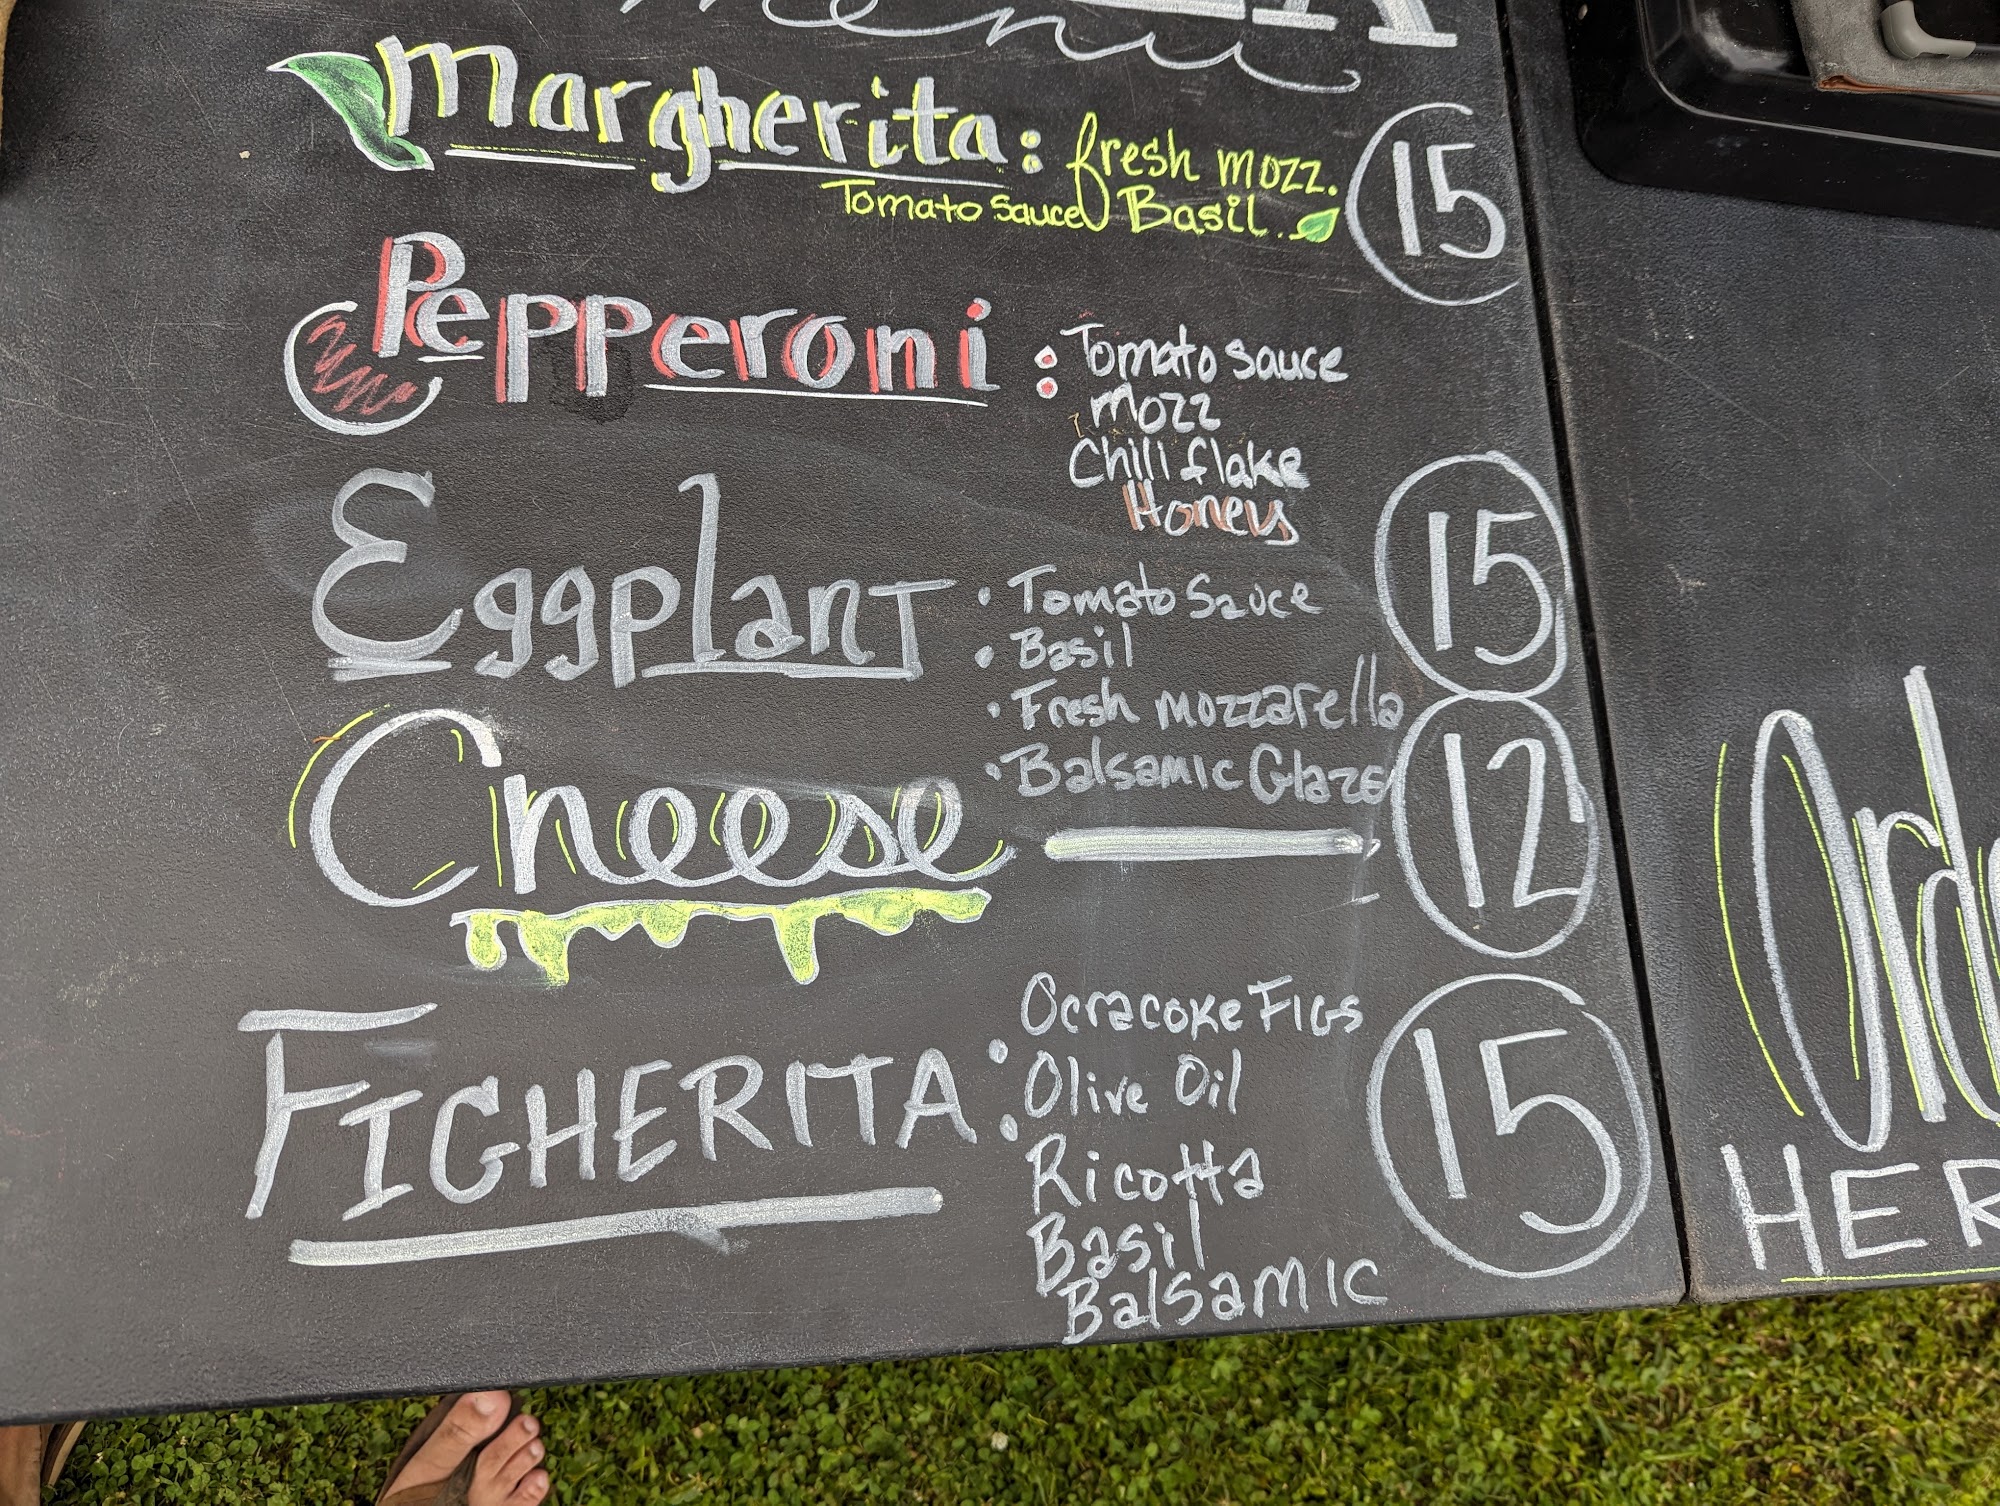 Menu
Margherita: fresh mozz. 15
Tomato Sauce Basil.
Pepperoni : Tomato Sauce
Mozz
Chili flake
Honey
Eggplant • Tomato Sauce 15
• Basil
• Fresh Mozzarella
• Balsamic Glaze
Cheese 12
FIGHERITA: Ocracoke Figs 15
Olive Oil
Ricotta
Basil
Balsamic
HER